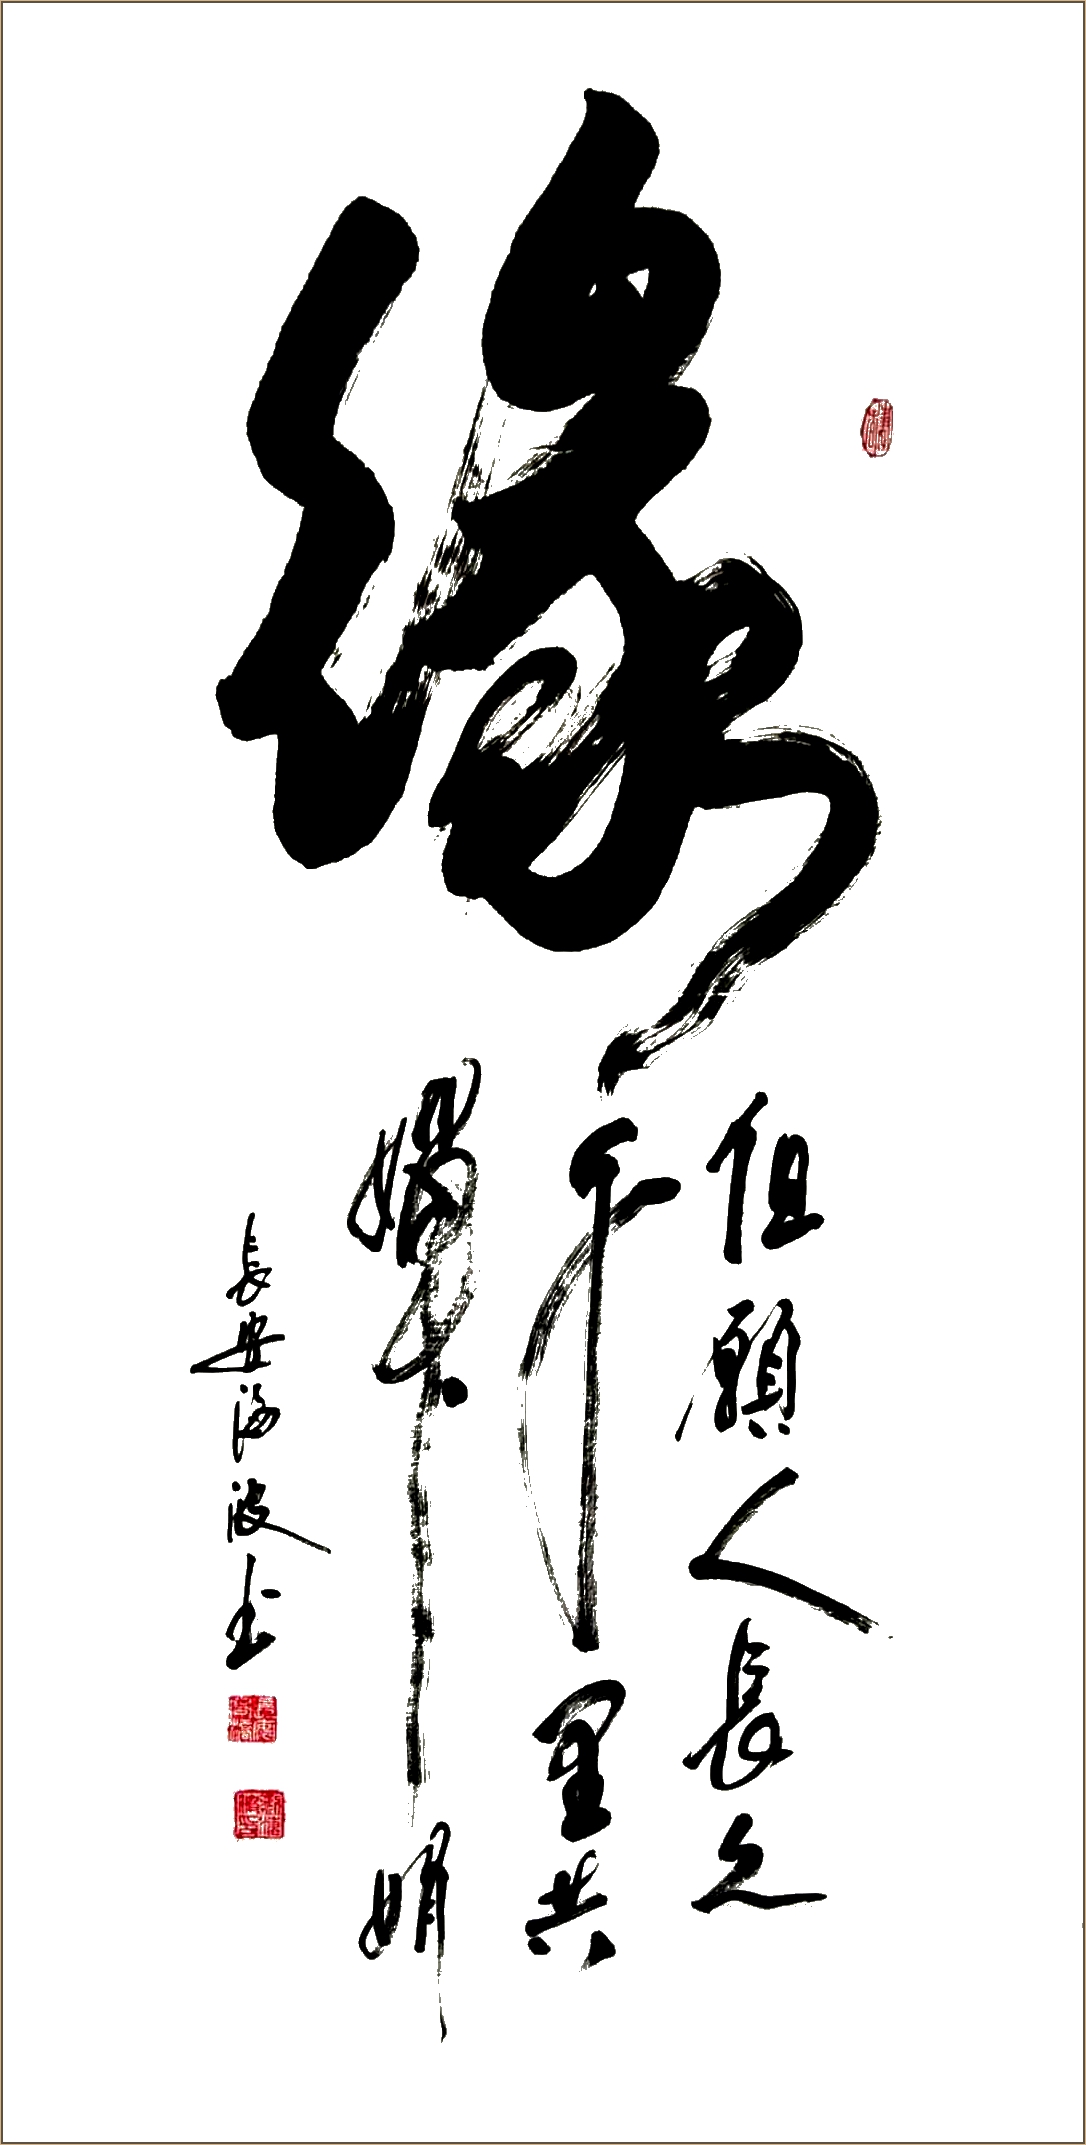 缘
但願人長久
千里共
婵娟
長安海波书